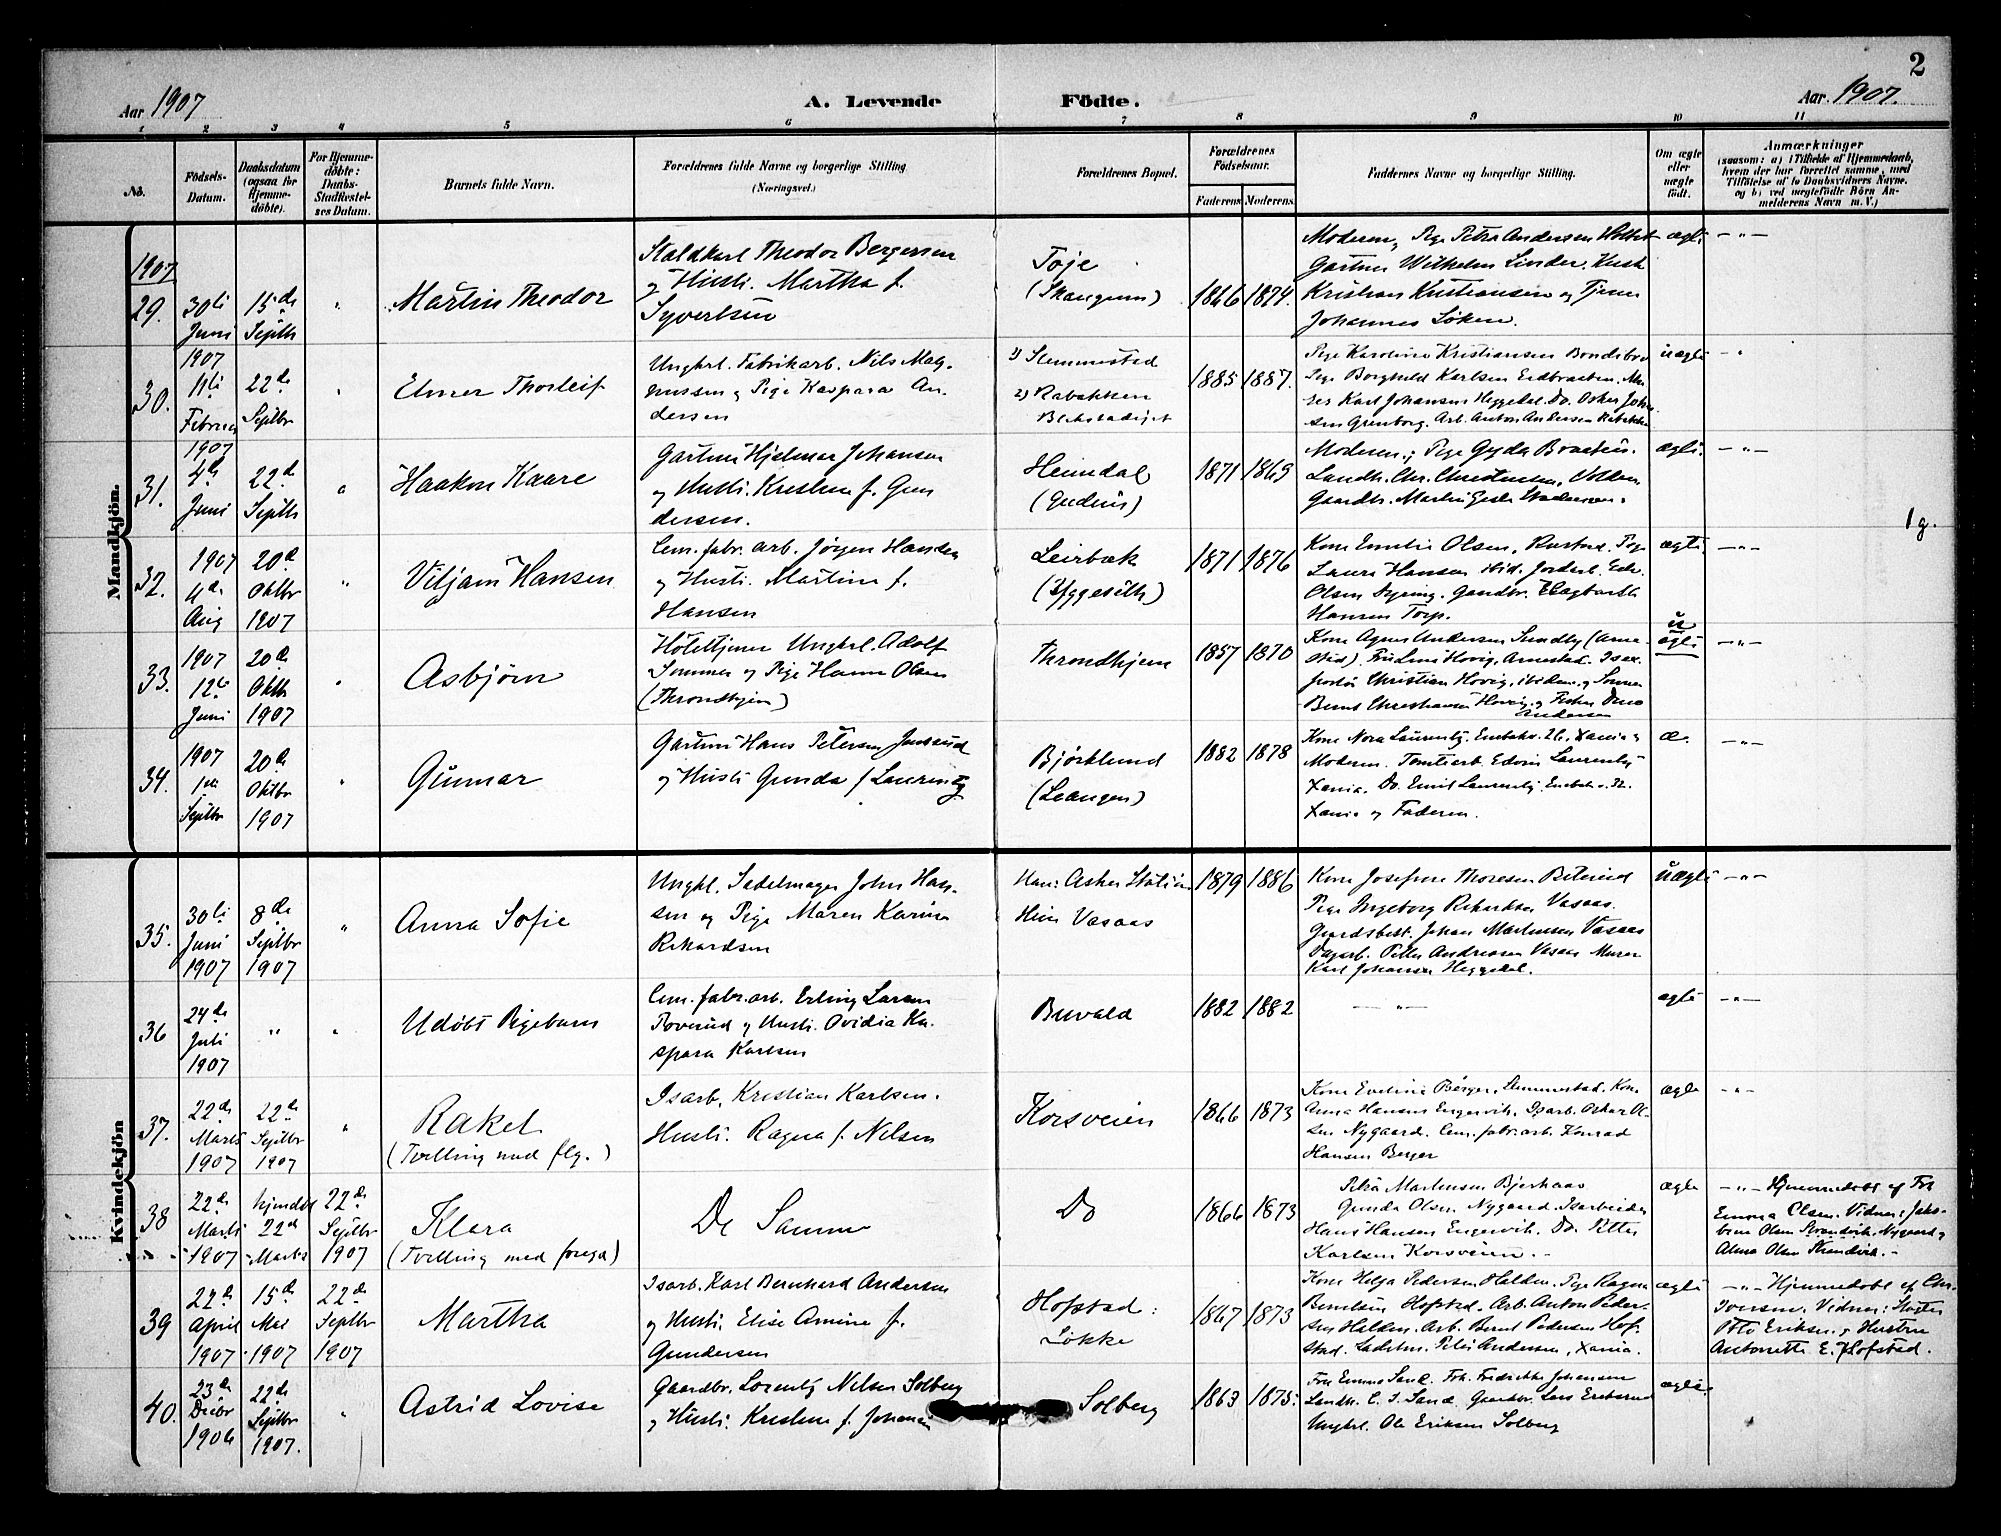 2
Aar 1907
A. Levende
Födte.
Aar. 1907.
1 2 3 4 5 6 7 8 9 10 11
No.
Födsels-Datum.
Daabsdatum (ogsaa for Hjemme-döbte).
For Hjemme-döbte: Daabs-Stadfæstel-ses Datum.
Barnets fulde Navn.
Forældrenes fulde Navne og borgerlige Stilling (Næringsvei.)
Forældrenes Bopæl.
Forældrenes Födselsaar.
Faderens Moderens.
Faddernes Navne og borgerlige Stilling.
Om ægte eller uægte födt.
Anmærkninger
(saasom: a) i Tilfælde af Hjemmedaab,
hvem der har forrettet samme, med
Tilföielse af to Daabsvidners Navne.
og b) ved uægtefödte Börn An-
melderens Navn m. V.)
Mandkjön.
1907
29.
30li Juni
15de Septbr
"
Martin Theodor
Staldkarl Theodor Bergersen
og Hustr. Martha f.
Syvertsen
Toje
(Skaugum)
1866 1874.
Moderen, Pige Petra Andersen Holtet
Gartner Wilhelm Linder, Kusk
Kristian Kristiansen og Tjener
Johannes Löken.
ægte
—"—
30.
1907 11li Februar
22de Septbr
"
Elmer Thorleif
Ungkrl. Fabrikarb. Nils Mag-
nussen og Pige Kaspara An-
dersen
1) Slemmestad
2) Rabakken
Blekstadeiet
1885 1887.
Pige Karoline Kristiansen Bondibro
Pige Borghild Karlsen Eidbraaten.
Karl Johansen Heggedal. Do. Oskar Johan
sen Grenborg. Arb. Anton Andersen Rabakken
uægte
"
31.
1907 4de Juni
22de Septbr
"
Haakon Kaare
Gartner Hjelmar Johansen
og Hustr. Kristine f. Gun
dersen.
Heimdal
(Gudeim)
1871 1869
Moderen; Pige Gyda Braaten.
Landh. Chr. Christensen,
ægte.
—"—
1 g.
32.
1907 4de Aug
20de Oktbr 1907
"
Viljam Hansen
Cem. fabr. arb. Jørgen Hansen
og Hustr. Martine f.
Hansen
Leirbæk
1871 1876
Kone Emilie Olsen, Rustad. Pige
Laura Hansen ibid.
Hansen Torp.
ægte.
—"—
33.
1907 12te Juni
20de Oktb 1907
"
Asbjörn
Hôteltjener Ungkrl. Adolf
Sommer og Pige Hanna Olsen
(Throndhjem)
Throndhjem
1857 1870
Kone Agnes Andersen Sundby
Christian Hovig, ibidem, og
Andersen
u
ægte
—"—
34.
1907 1ste Septbr
20de Oktbr 1907
"
Gunnar
Gartner Hans Petersen
og Hustr. Gunda f. Laurentz
Bjørklund
(Leangen)
1882 1878
Moderen. Tomtearb. Edvin
Xania. Do. Emil
Xania og Faderen.
æ.
—"—
Kvindekjön
35.
30li Juni 1907
8de Septbr 1907
"
Anna Sofie
Ungkl. Sadelmager John Han-
sen og Pige Maren Karine
Rikardsen
Han: Asker Station
Hun Vasaas
1879 1886
Kone Josefine Thoresen
Pige Ingeborg Rikardsen Vasaas.
Gaardsbest. Johan Martinsen Vasaas
Dagarb. Petter Andreasen Vasaas Murer
Karl Johansen Heggedal.
uægte
—"—
36
24de Juli 1907
"
"
Udöbt Pigebarn
Cem. fabr. arb. Erling Larsen
Roverud og Hustr. Ovidia Ka-
spara Karlsen
Buvald
1882 1882
— "—
ægte
—"—
37.
22de Marts 1907
22de Septbr 1907
"
Rakel
(Tvilling med flg.)
Isarb. Kristian Karlsen.
Hustr. Ragna f. Nilsen
Korsveien
1866 1873
Kone Eveline Berger, Slemmestad. Kone
Anna Hansen Engervik. Isarb. Oskar Ol-
sen Nygaard. Cem. fabr. arb. Konrad
Hansen Berger
ægte
—"—
38
22de Marts 1907
hjemdöbt 22de Marts
22de Septbr 1907
Klara
(Tvilling med foreg.)
De Samme
Do
1866 1873
Petra Martinsen Bjerkaas
Gunda Olsen Nygaard. Isarbeider
Hans Hansen Engervik. Do. Petter
Karlsen Korsveien.-
ægte
—"— Hjemmedöbt af Fru
Emma Olsen. Vidner: Jakob-
ine Olsen Strandvik. Nygaard og
Alma Olsen Strandvik.-
39
22de April 1907.
15de Mai 1907
22de Septbr 1907
Martha
Isarb. Karl Bernhard Andersen
og Hustr. Elise Amine f.
Gundersen
Hofstad:
Løkke
1867 1873
Kone Helga Pedersen Halden. Pige Ragna
Berntsen Hofstad. Arb. Anton Peder-
sen Halden. Arb. Bernt Pedersen Hof-
stad. Sadelm. Peter Andersen, Xania.
ægte
—"— Hjemmedöbt af Chr.
Iversen. Vidner:
Otto Eriksen og Hustru
Antonette E. Hofstad.
40.
23de Decbr 1906
22de Septbr 1907.
"
Astrid Lovise
Gaardbr. Lorentz Nilsen Solberg
og Hustr. Kristine f. Johansen
Solberg
1863 1875.
Fru Emma Sand. Frk. Fredrikke Johansen
Landh. C. J. Sand. Gaardbr. Lars
Ungkrl. Ole Eriksen Solberg
ægte.